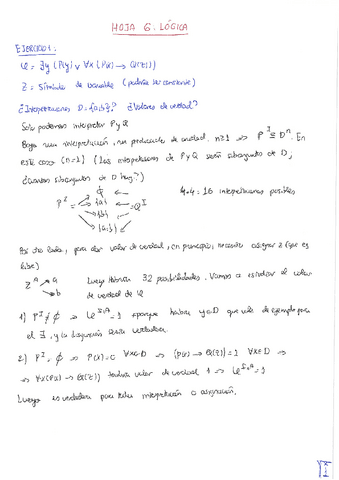 HOJA 6: LÓGICA
EJERCICIO 1:
φ = ∃y (P(y) ∨ ∀x (P(x) → Q(z)))
z = Símbolo de variable (podría ser constante)
¿Interpretaciones D = {a,b}? ¿Valores de verdad?
Solo podemos interpretar P y Q
Bajo una interpretación, un predicado de aridad n≥1 → P^I ⊆ D^n. En
este caso (n=1) (las interpretaciones de P y Q serán subconjuntos de D,
¿cuántos subconjuntos de D hay?)
∅
P^I = {a} = Q^I 4·4 = 16 interpretaciones posibles
{b}
{a,b}
Así, para dar valor de verdad, en principio, necesito asignar z (que es
libre)
z^A → a Luego habrán 32 posibilidades. Vamos a estudiar el valor
→ b de verdad de φ
1) P^I ≠ ∅ ⇒ φ^{I,A} = 1 porque habrá y∈D que vale de ejemplo para
el ∃, y la disyunción será verdadera.
2) P^I = ∅ ⇒ P(x)=0 ∀x∈D ⇒ (P(x) → Q(z)) = 1 ∀x∈D ⇒
⇒ ∀x(P(x) → Q(z)) tendrá valor de verdad 1 ⇒ φ^{I,A} = 1
Luego es verdadera para toda interpretación o asignación.